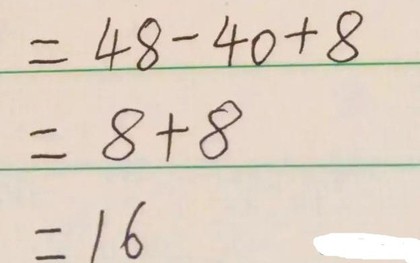 = 48 - 40 + 8
= 8 + 8
= 16